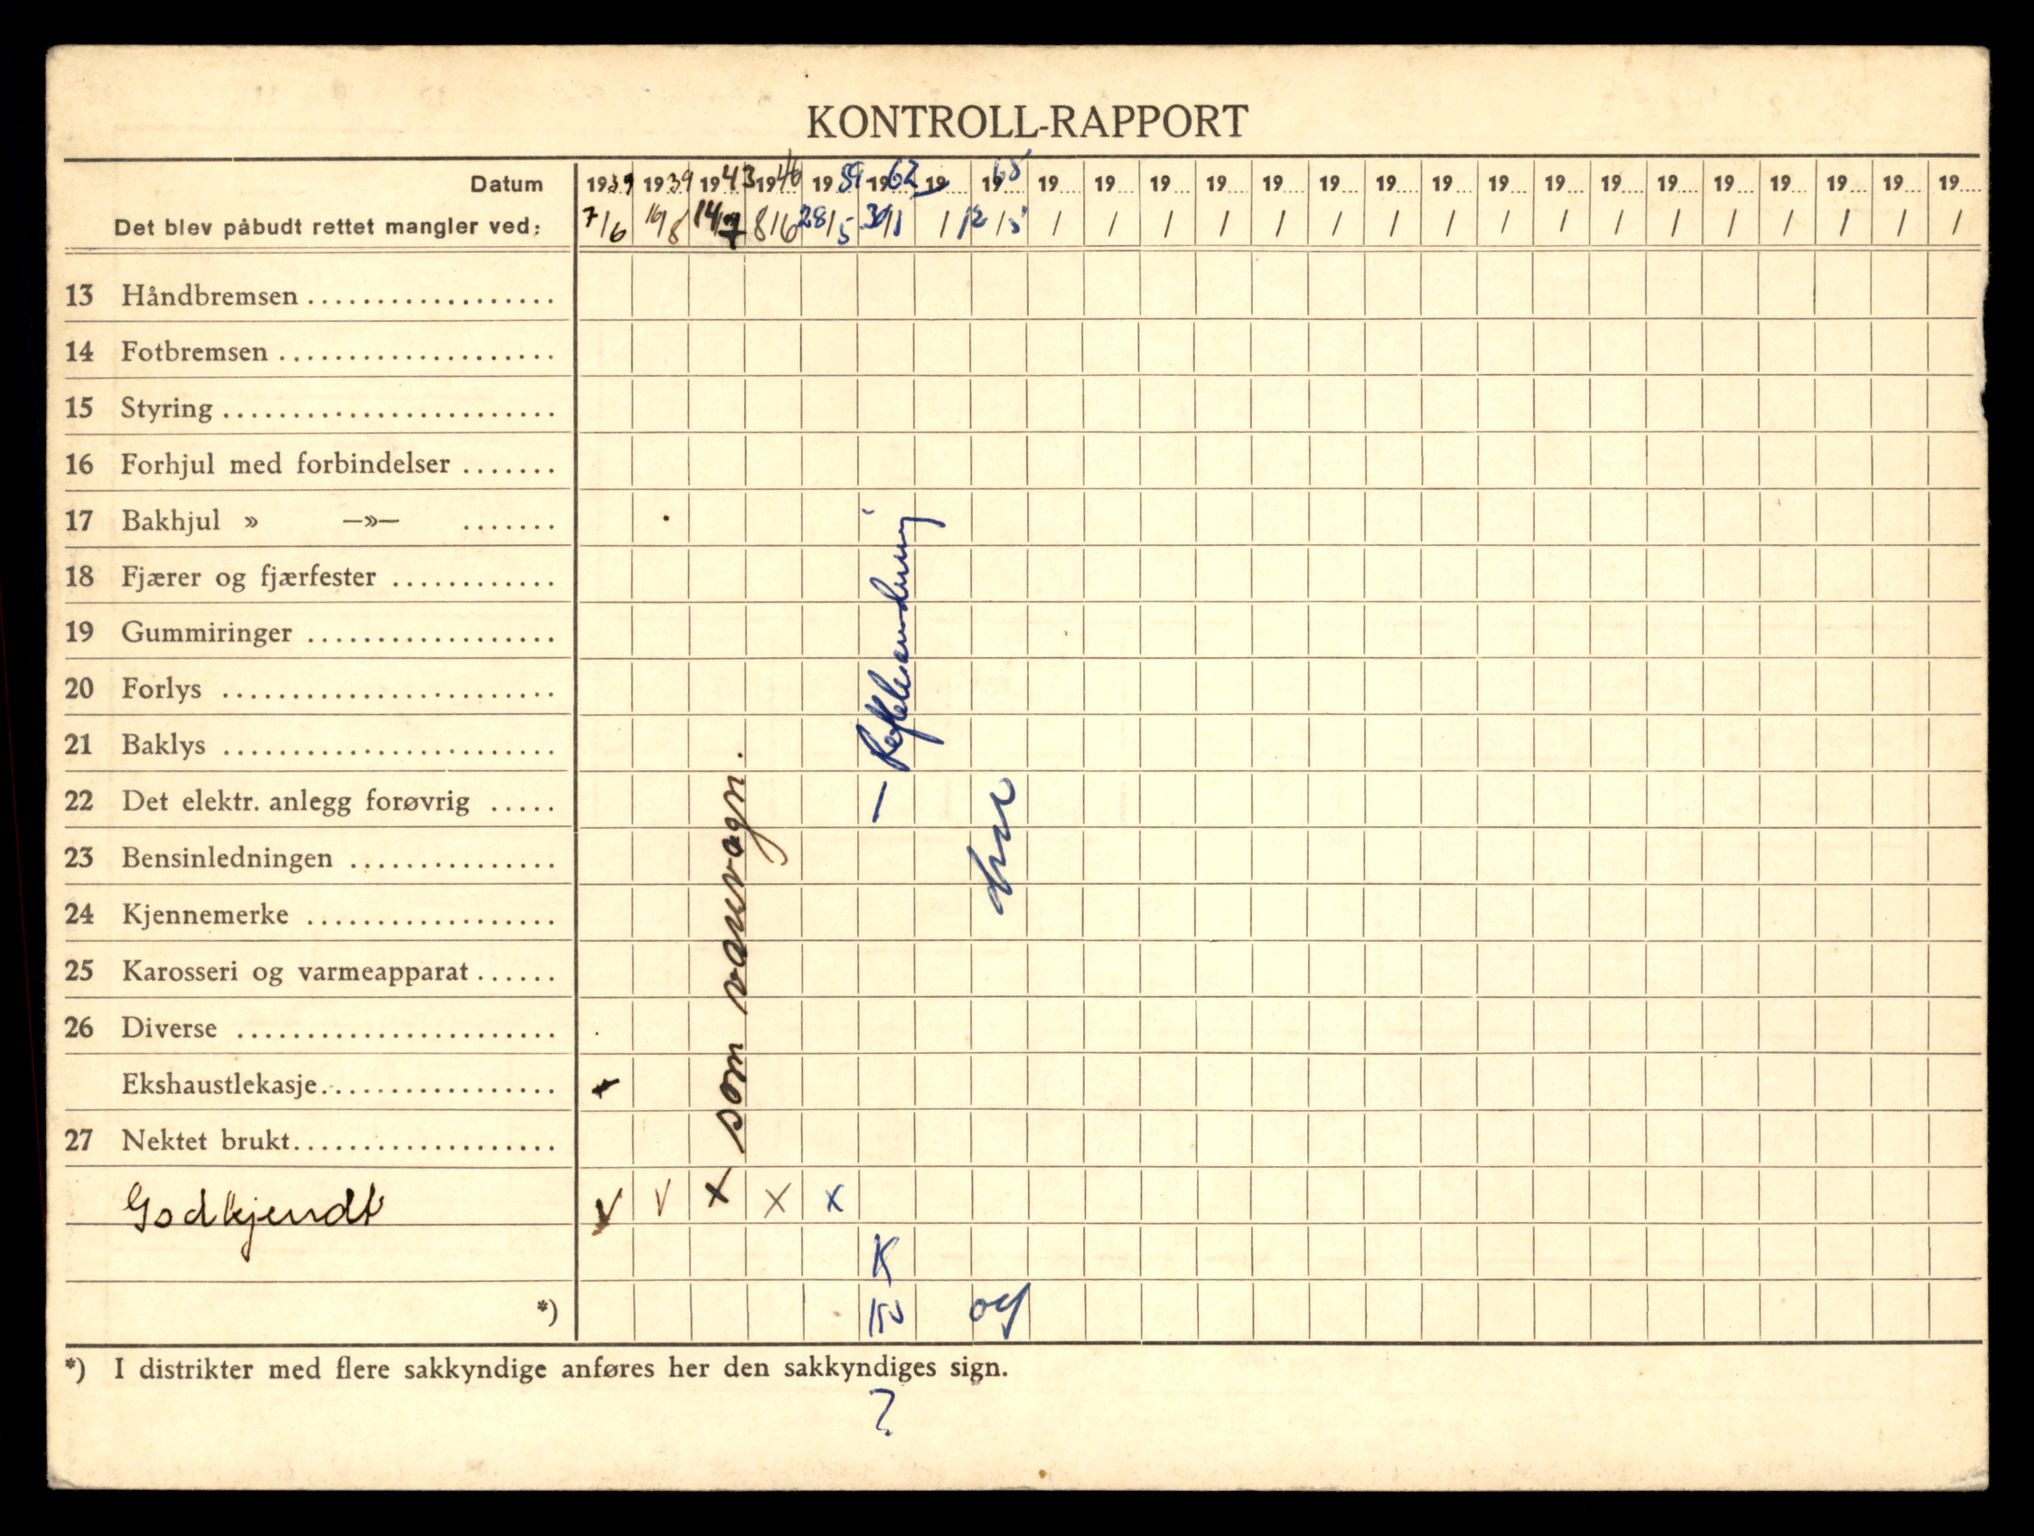 KONTROLL-RAPPORT
Datum 1939 1939 1943 1946 1959 1962 19.... 1965 19.... 19.... 19.... 19.... 19.... 19.... 19.... 19.... 19.... 19.... 19.... 19.... 19.... 19.... 19.... 19.... 19....
Det blev påbudt rettet mangler ved: 7/6 16/8 14/7 8/6 28/5 30/1 / 12/5 / / / / / / / / / / / / / / / / /
13 Håndbremsen
14 Fotbremsen
15 Styring
16 Forhjul med forbindelser
17 Bakhjul » —»—
18 Fjærer og fjærfester
19 Gummiringer
20 Forlys
21 Baklys
22 Det elektr. anlegg forøvrig
23 Bensinledningen
24 Kjennemerke
25 Karosseri og varmeapparat
26 Diverse
Ekshaustlekasje
27 Nektet brukt
som varevogn.
Godkjendt V V x x x
K
*)
*) I distrikter med flere sakkyndige anføres her den sakkyndiges sign.
?